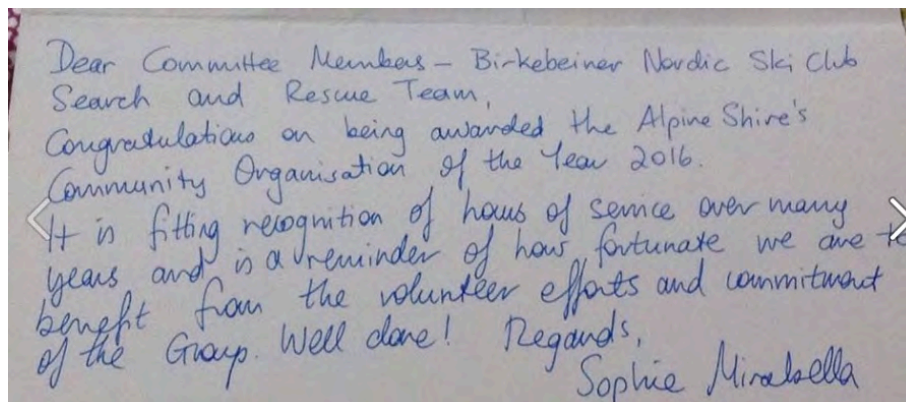 Dear Committee Members - Birkebeiner Nordic Ski Club
Search and Rescue Team,
Congratulations on being awarded the Alpine Shire's
Community Organisation of the Year 2016.
It is fitting recognition of hours of service over many
years and is a reminder of how fortunate we are to
benefit from the volunteer efforts and commitment
of the Group. Well done! Regards,
Sophie Mirabella